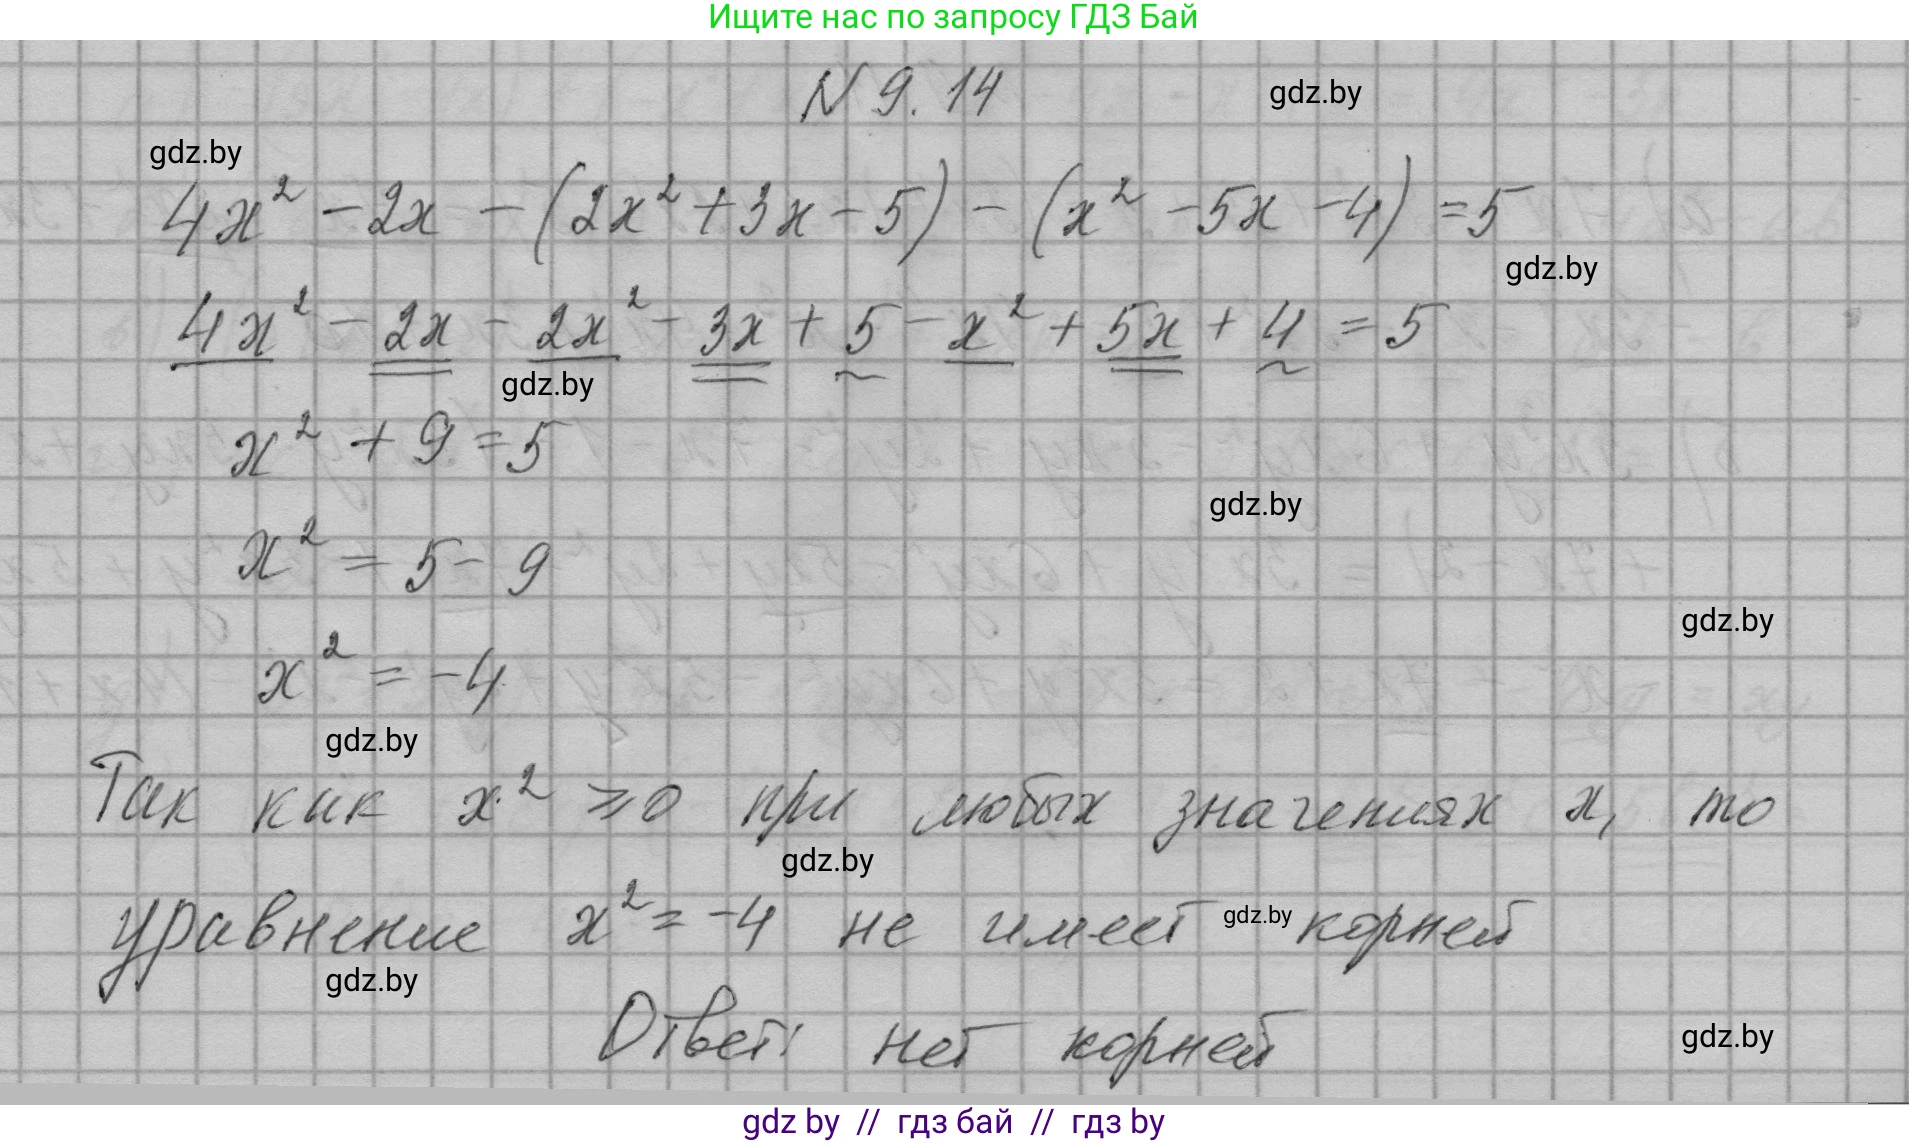 Ищите нас по запросу ГДЗ Бай
N 9.14
gdz.by
gdz.by
4x² - 2x - (2x² + 3x - 5) - (x² - 5x - 4) = 5
gdz.by
4x² - 2x - 2x² - 3x + 5 - x² + 5x + 4 = 5
gdz.by
x² + 9 = 5
gdz.by
x² = 5 - 9
gdz.by
x² = -4
gdz.by
Так как x² ⩾ 0 при любых значениях x, то
gdz.by
уравнение x² = -4 не имеет gdz.by корней
gdz.by
Ответ: нет корней
gdz.by
gdz by // гдз бай // гдз by